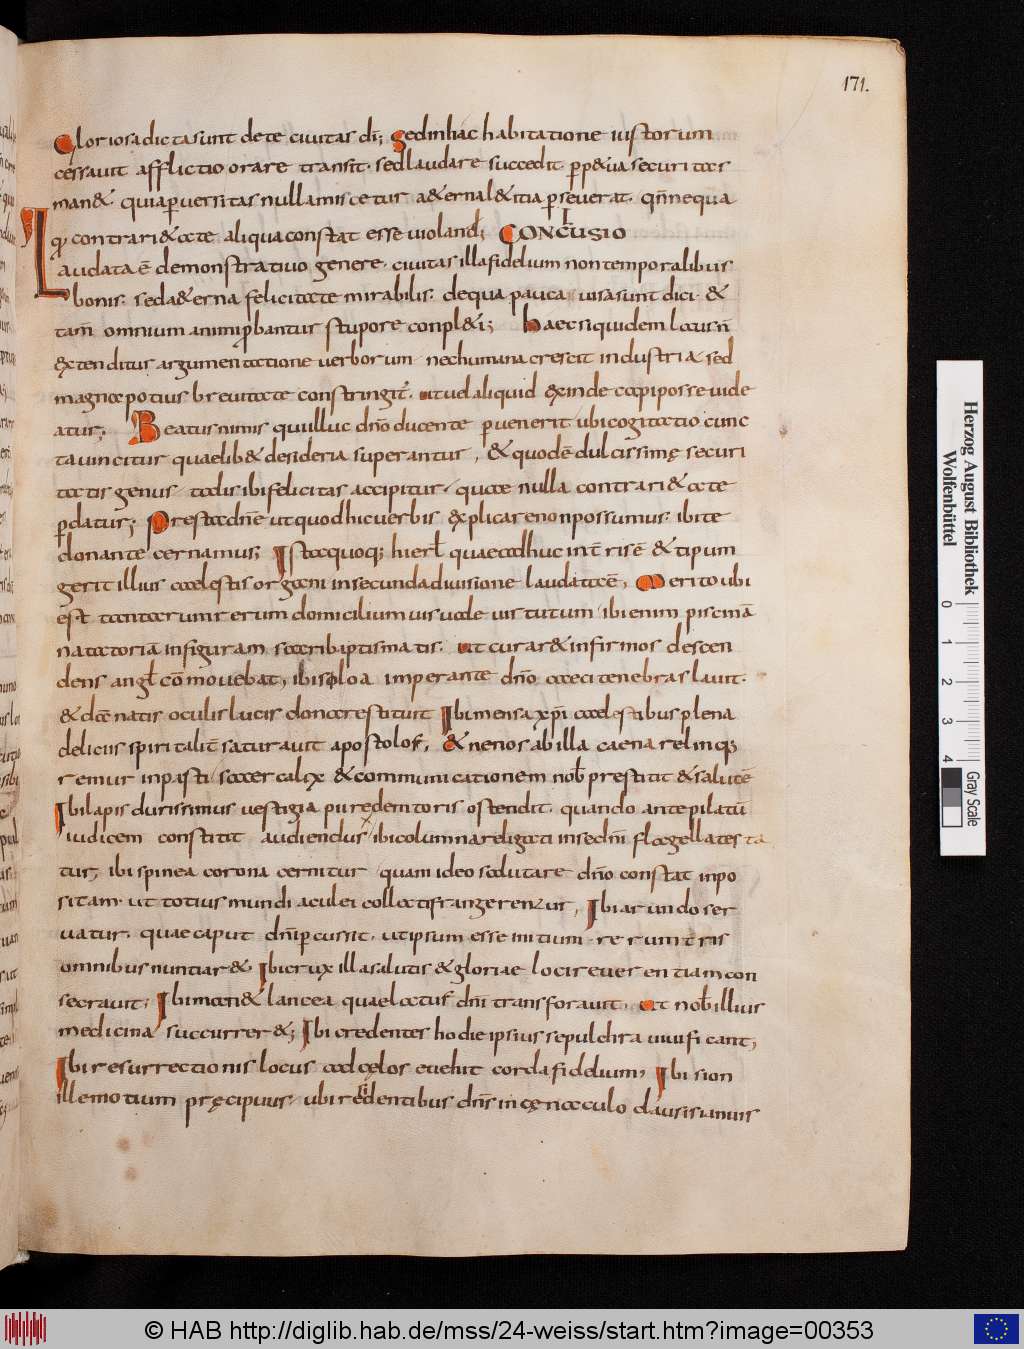 171.
Gloriosa dicta sunt de te civitas dī; sed in hac habitatione iustorum
cessavit afflictio orare transit. sed laudare succedit. pp&ua securitas
man&. quia pversitas nulla miscetur a&ernal&itia pseverat. qn̄ nequa
q, contrari&ate aliqua constat esse violand̄; CONCLUSIO
Laudata ē demonstrativo genere. civitas illa fidelium non temporalibus
bonis. sed a&erna felicitate mirabilis. de qua pauca visa sunt dici. &
tam̄ omnium animi p̄bantur stupore conpl&i; Haec siquidem laus n̄
extenditur argumentatione verborum nec humana crescit industria sed
magna potius brevitate constringit̄. ut vel aliquid exinde capi posse vide
atur; Beatus nimis qui illuc dn̄o ducente pvenerit ubi cogitatio cunc
ta vincitur quaelib& desideria superantur, & quod ē dulcissimę securi
tatis genus. talis ibi felicitas accipitur, quae nulla contrari&ate
pdatur; Praesta dn̄e ut quod hic verbis explicare non possumus. ibi te
donante cernamus; Ista quoq; hierl̄ quae adhuc in t̄ris ē & tipum
gerit illius caelestis organi in secunda divisione laudata ē, Merito ubi
est tantarum rerum domicilium vis vade virtutum ibi enim piscinā
natatoriā in figuram sacri baptismatis. ut curar& infirmos descen
dens angl̄ cōmovebat, ibi siloa imperante dn̄o caeci tenebras lavit.
& dānatis oculis lucis dona restituit Ibi mensa xp̄i caelestibus plena
deliciis spiritalit̄ saturavit apostolos, & ne nos ab illa caena relinq,
remur inpasti sacer calix & communicationem nob̄ prestitit & salutē
Ibi lapis durissimus vestigia pii redemtoris ostendit. quando ante pilatū
iudicem constitit audiendus ibi columna religati insedn̄i flagella testa
tur, ibi spinea corona cernitur quam ideo salutare dn̄o constat inpo
sitam. ut totius mundi aculei collecti frangerentur, Ibi arundo ser
vatur. quae caput dn̄i pcussit. ut ipsum esse initium rerum t̄ris
omnibus nuntiar&. Ibi crux illa salutis & gloriae loci reverentiam con
secravit; Ibi man& lancea quae latus dn̄i transforavit. ut nob̄ illius
medicina succurrer&; Ibi credentes hodie ipsius sepulchra vivificant,
Ibi resurrectionis locus ad cęlos evehit corda fidelium, Ibi sion
ille motium pręcipuus ubi residentibus dn̄s in cęnaculo clausis ianuis
Herzog August Bibliothek
Wolfenbüttel
0 1 2 3 4
Gray Scale
© HAB http://diglib.hab.de/mss/24-weiss/start.htm?image=00353